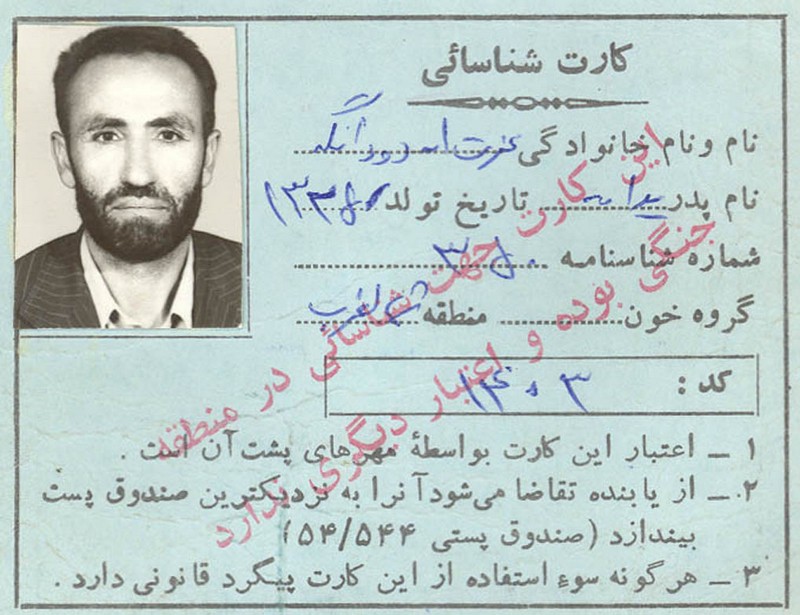 کارت شناسائی
نام و نام خانوادگی عزت اله
نام پدر یداله تاریخ تولد
شماره شناسنامه
گروه خون منطقه
کد :
۱ ــ اعتبار این کارت بواسطهٔ مهرهای پشت آن است .
۲ ــ از یابنده تقاضا می‌شود آنرا به نزدیکترین صندوق پست
بیندازد (صندوق پستی ۵۴/۵۴۴)
۳ ــ هرگونه سوءِ استفاده از این کارت پیگرد قانونی دارد .
این کارت جهت شناسائی در منطقه
جنگی بوده و اعتبار دیگری ندارد